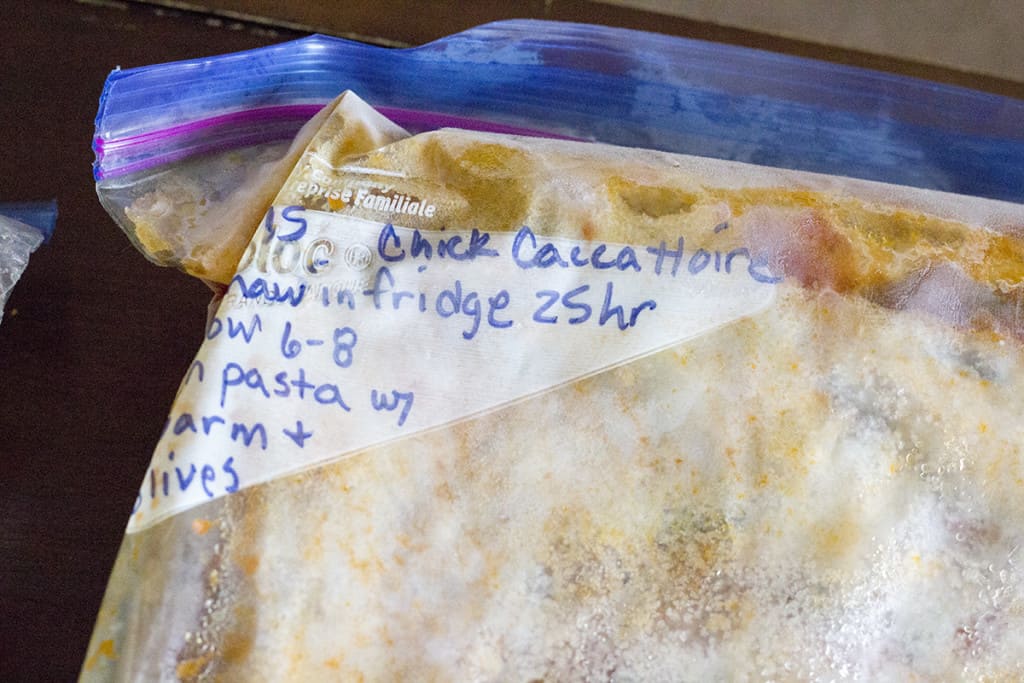 eprise Familiale
LOC ®
s - Chick Caccattoire
haw in fridge 25hr
ow 6-8
n pasta w/
arm +
olives